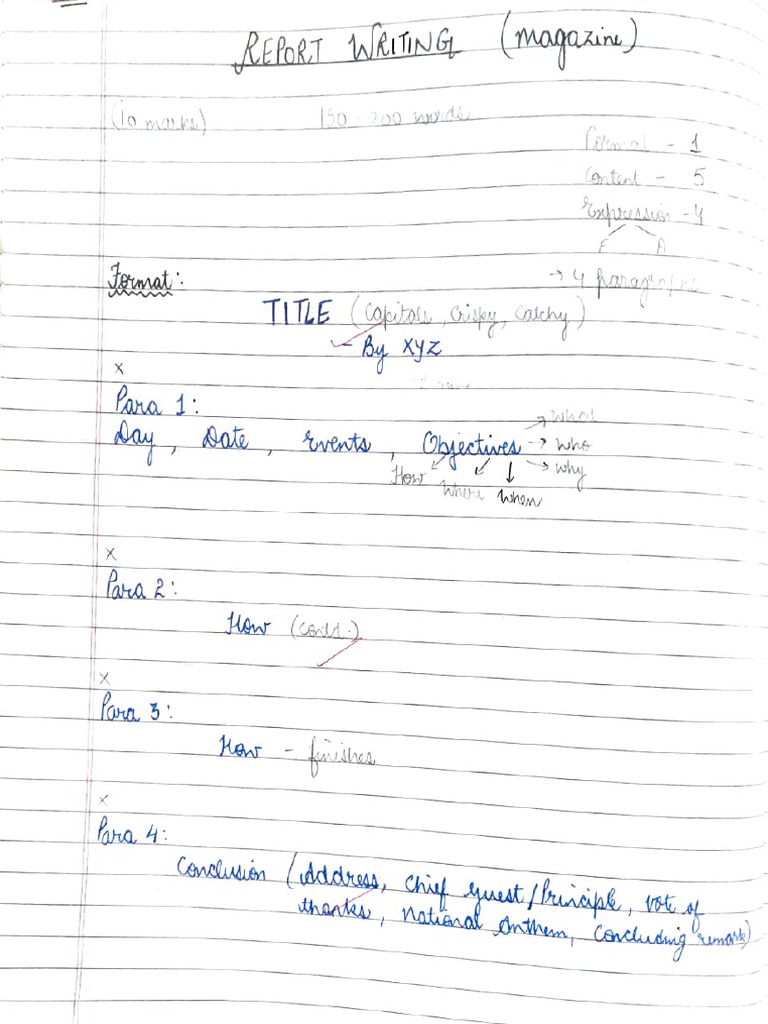 REPORT WRITING (magazine)
(10 marks) 150 - 200 words
Format - 1
Content - 5
Expression - 4
F A
→ 4 paragraphs
Format:
TITLE (Capitals, Crispy, Catchy)
- By XYZ
x
Para 1:
→ What
Day, Date, Events, Objectives → Who
→ Why
How Where When
x
Para 2:
How (contd.)
x
Para 3:
How - finishes
x
Para 4:
Conclusion (Address, Chief guest/Principle, vote of
thanks, National Anthem, Concluding remark)